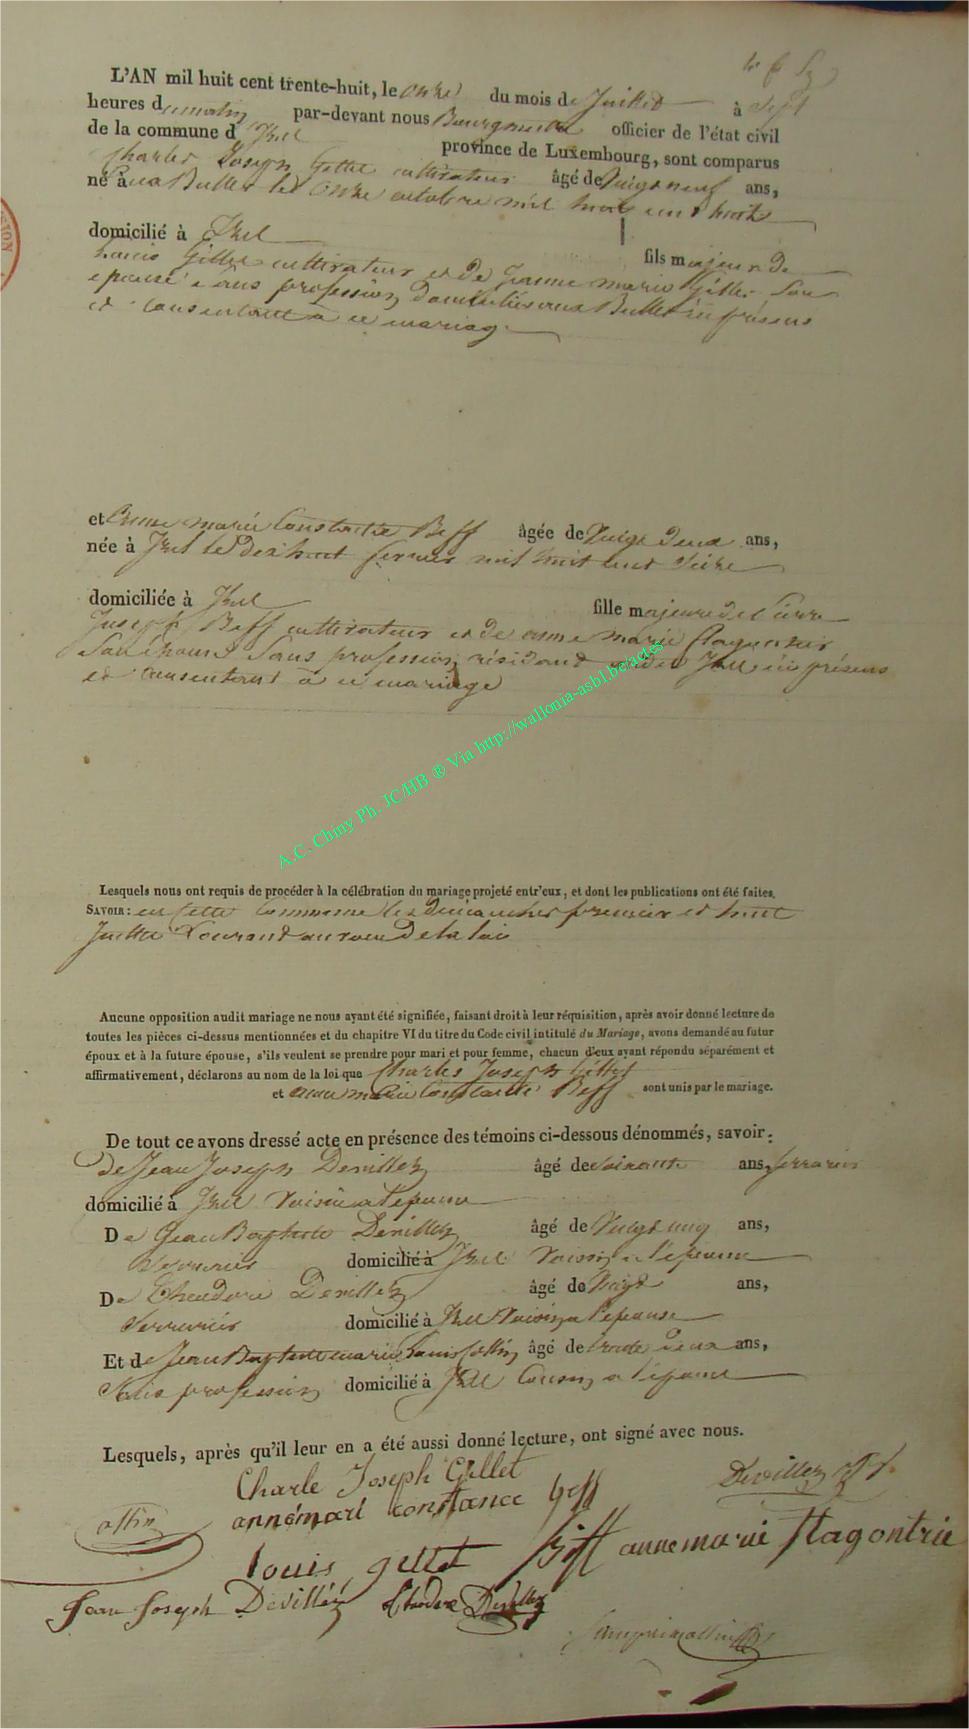 L'AN mil huit cent trente-huit, le onze du mois de Juillet à Sept
heures du matin par-devant nous Bourgmestre officier de l'état civil
de la commune d'Izel province de Luxembourg, sont comparus
Charles Joseph Gillet cultivateur âgé de Vingt neuf ans,
né à aux Bulles le onze octobre mil huit cent huit
domicilié à Izel fils majeur de
Louis Gillet cultivateur et de Jeanne marie Gillet Son
épouse sans profession domiciliés aux Bulles ici présens
et consentant à ce mariage
et Anne marie Constance Beff âgée de Vingt Deux ans,
née à Izel le dix huit mil huit cent Seize
domiciliée à Izel fille majeure de Pierre
Joseph Beff cultivateur et de anne marie flagontier
Son épouse Sans profession résidant Izel ici présens
et consentant à ce mariage
A.C. Chiny Ph. JC/HB ® Via http://wallonia-asbl.be/actes
Lesquels nous ont requis de procéder à la célébration du mariage projeté entr'eux, et dont les publications ont été faites.
SAVOIR: en Cette Commune les Dimanches premier et huit
Juillet Courant au voeu De la loi
Aucune opposition audit mariage ne nous ayant été signifiée, faisant droit à leur réquisition, après avoir donné lecture de
toutes les pièces ci-dessus mentionnées et du chapitre VI du titre du Code civil intitulé du Mariage, avons demandé au futur
époux et à la future épouse, s'ils veulent se prendre pour mari et pour femme, chacun d'eux ayant répondu séparément et
affirmativement, déclarons au nom de la loi que Charles Joseph Gillet
et anne marie Constance Beff sont unis par le mariage.
De tout ce avons dressé acte en présence des témoins ci-dessous dénommés, savoir:
de Jean Joseph Devillez âgé de Soixante ans, serrurier
domicilié à Izel Voisin a l'épouse
De Jean Baptiste Devillez âgé de Vingt cinq ans,
Serrurier domicilié à Izel Voisin a l'épouse
De Theodore Devillez âgé de Vingt ans,
Serrurier domicilié à Izel Voisin a l'épouse
Et de Jean Baptiste marie Louis Collin âgé de trente Deux ans,
Sans profession domicilié à Izel Cousin a l'épouse
Lesquels, après qu'il leur en a été aussi donné lecture, ont signé avec nous.
Charle Joseph Gillet
Devillez
annémari constance beff
louis gellet Beff annemarie flagontrie
Jean Joseph Devilléz théodore Devillez